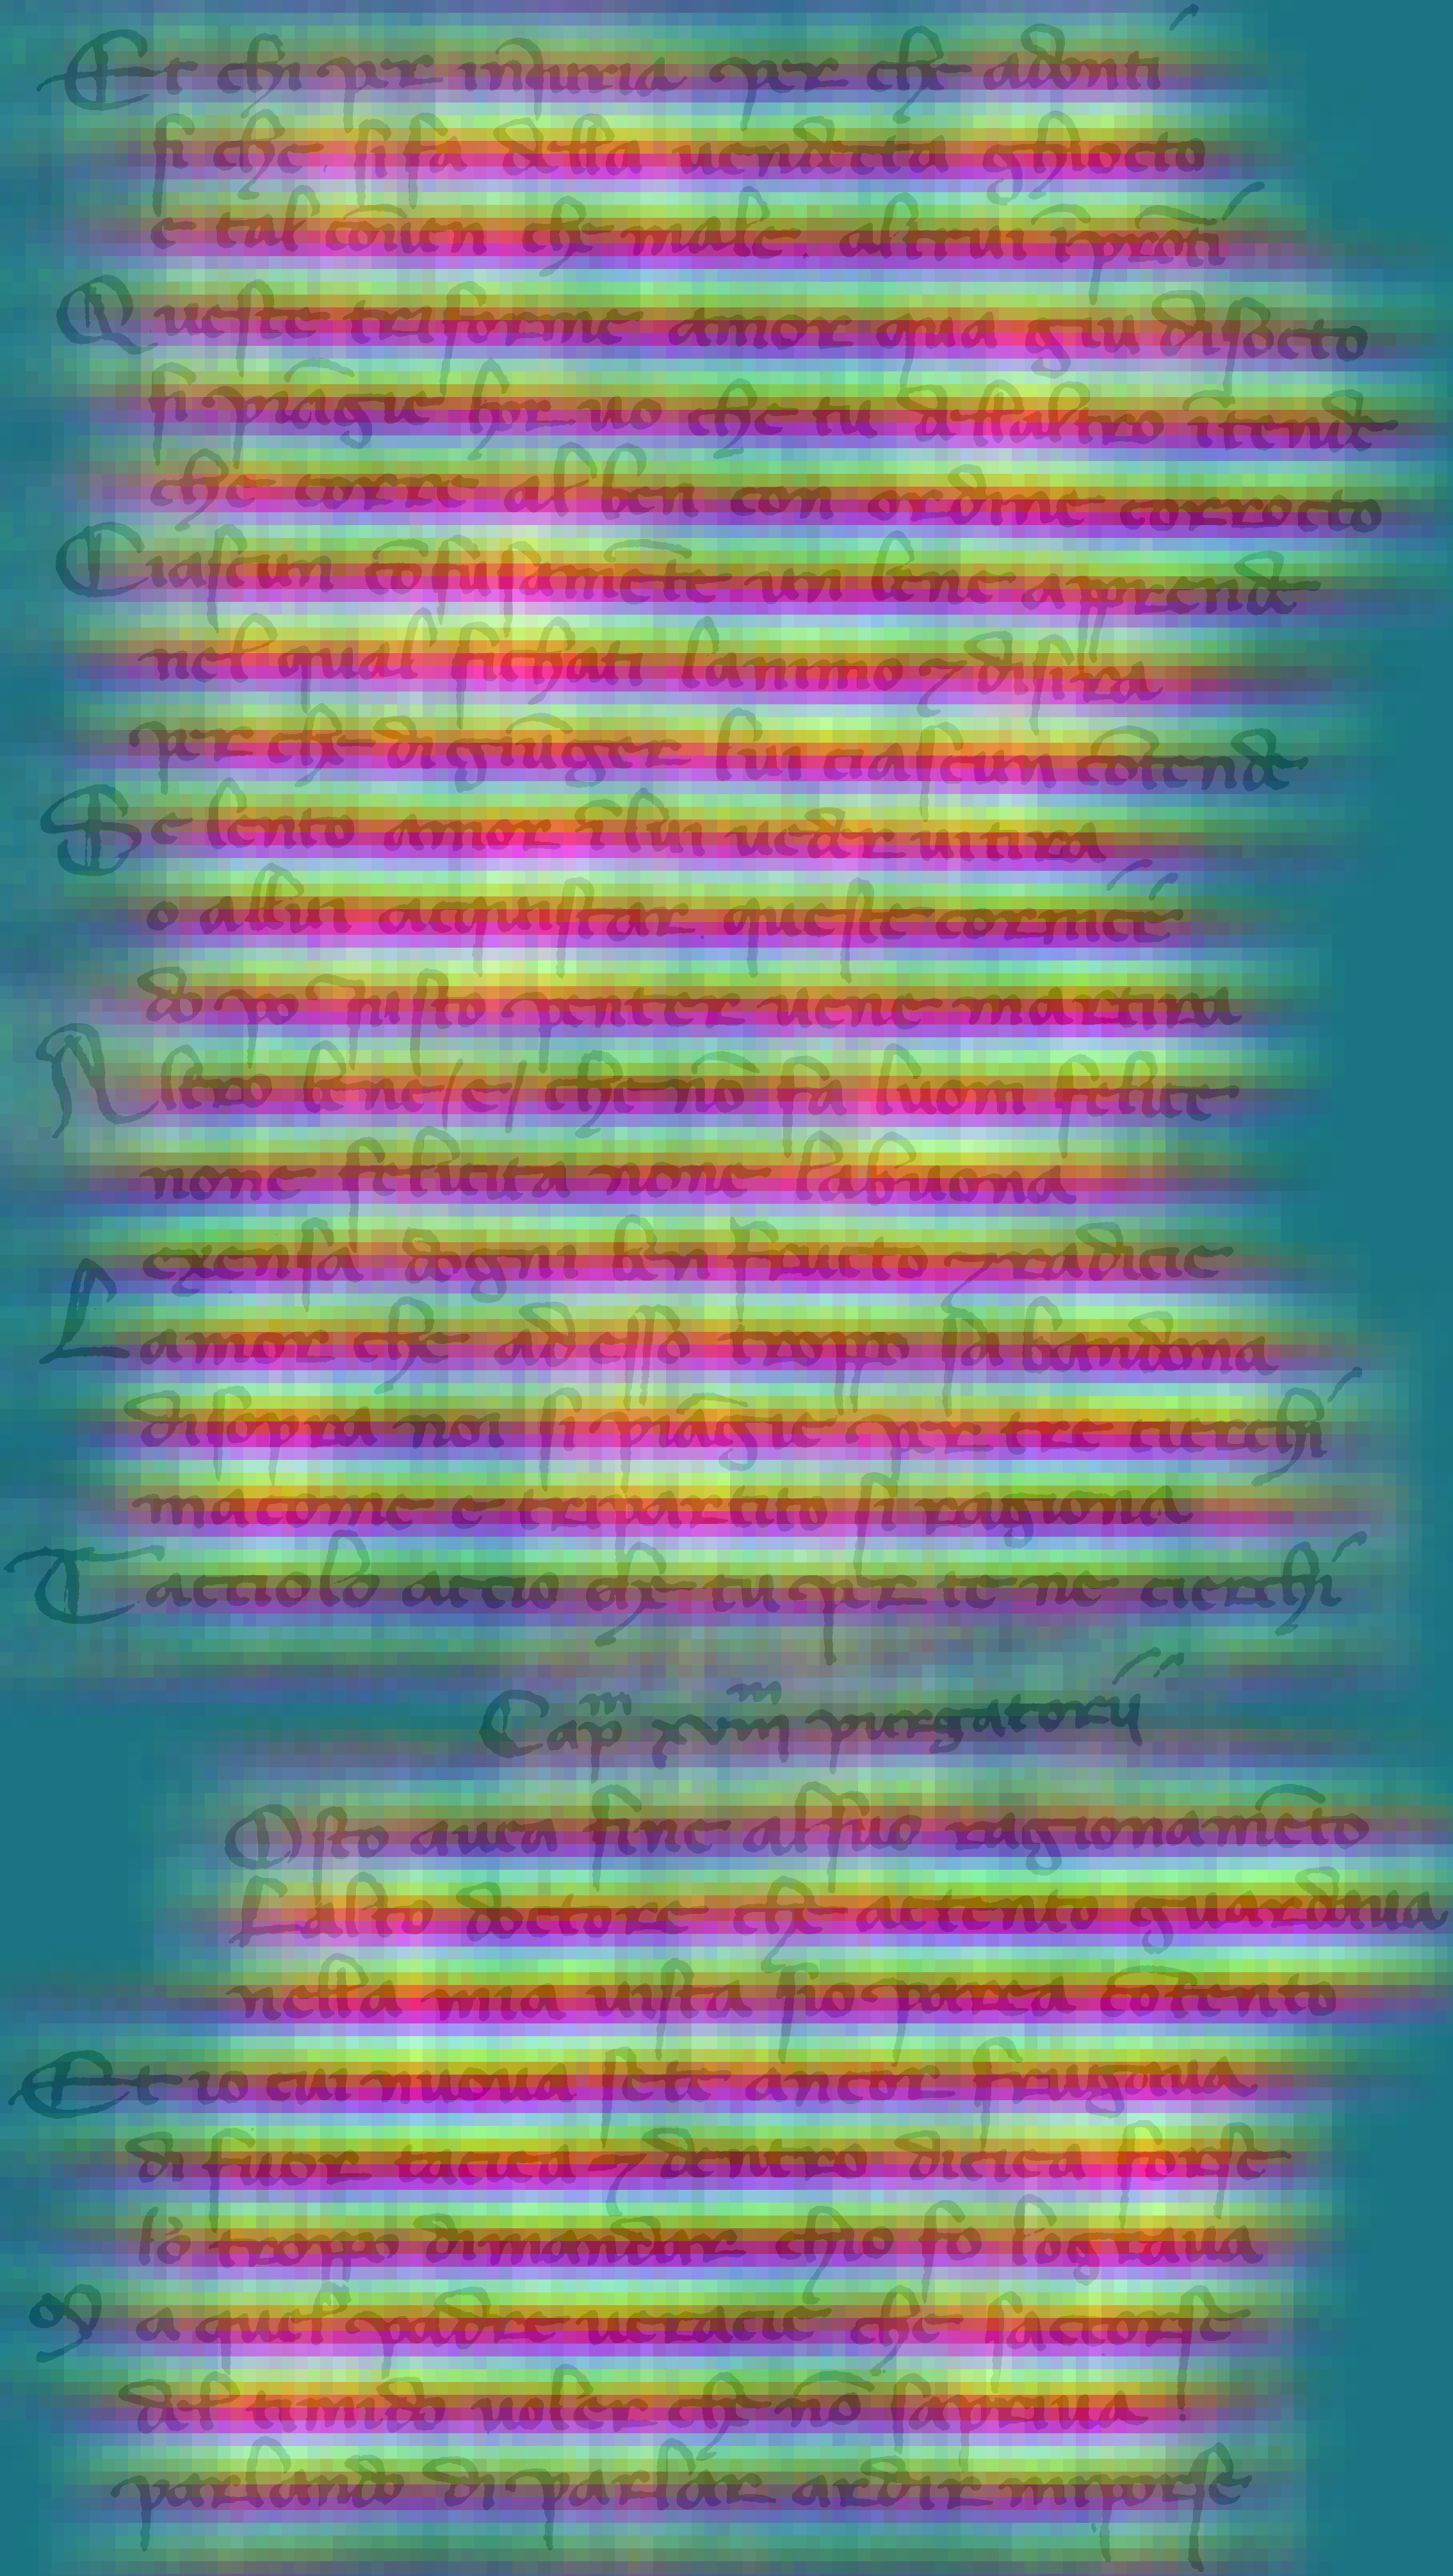 Et chi per iniuria per che adonti
si che si fa della uendecta ghiocto
e tal cōuien che male altrui īprōti
Queste triforme amor qua giu disocto
si piāgie hor uo che tu dellaltro ītende
che corre al ben con ordine corrocto
Ciascun cōfusamēte un bene apprende
nel qual si chati lanimo ⁊ disira
per che di giūger lui ciascun cōtende
Se lento amor ī lui ueder uitira
o allui acquistar queste cornicē
do po giusto penter uene martira
Altro bene /e/ che nō fa luom felice
none felicita none la buona
exensa dogni ben fructo ⁊ radice
Lamor che ad esso troppo sa bandona
di sopra noi si piāgie per tre cierchi
ma come e tripartito si ragiona
Tacciolo accio che tu per te ne cierchi
Capm xvm purgatorii
Osto auea fine al suo ragionamēto
Lalto doctore che actento guardaua
nella mia uista sio parea cōtento
Et io cui nuoua sete ancor frugaua
di fuor tacea ⁊ dentro dicea forse
lo troppo dimandar chio fo lograua
9 a quel padre uerace che saccorse
del timido uoler che nō sapriua
parlando di parlar ardir mi porse